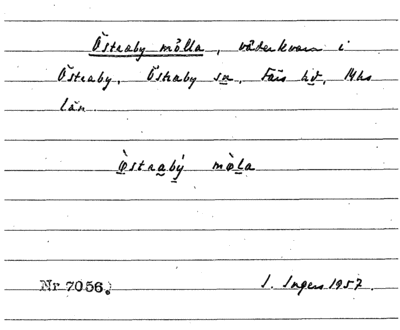 Östraby mölla, väderkvarn i
Östraby. Östraby sn, Färs hd, Mhs
län.
Östraby möla
Nr 7056. I. Ingers 1957.